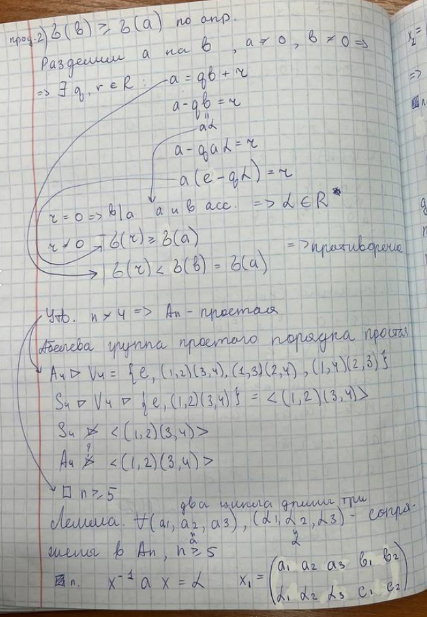 прод. 2) δ(b) ≥ δ(a) по опр.
Разделим a на b, a ≠ 0, b ≠ 0 =>
=> ∃ q, r ∈ R : a = qb + r
a - qb = r
aα
a - qaα = r
a(e - qα) = r
r = 0 => b|a a и b асс. => α ∈ R*
r ≠ 0 δ(r) ≥ δ(a)
=> противоречие
δ(r) < δ(b) = δ(a)
Утв. n ≠ 4 => An - простая
Абелева группа простого порядка проста
A4 ▷ V4 = {e, (1,2)(3,4), (1,3)(2,4), (1,4)(2,3)}
S4 ▷ V4 ▷ {e, (1,2)(3,4)} = <(1,2)(3,4)>
S4 ⋫ <(1,2)(3,4)>
A4 ⋫ <(1,2)(3,4)>
□ n ≥ 5
два цикла длины три
Лемма. ∀(a1, a2, a3), (α1, α2, α3) - сопря-
a α
жены в An, n ≥ 5
x⁻¹ a x = α x1 = (a1 a2 a3 b1 b2
α1 α2 α3 c1 c2)